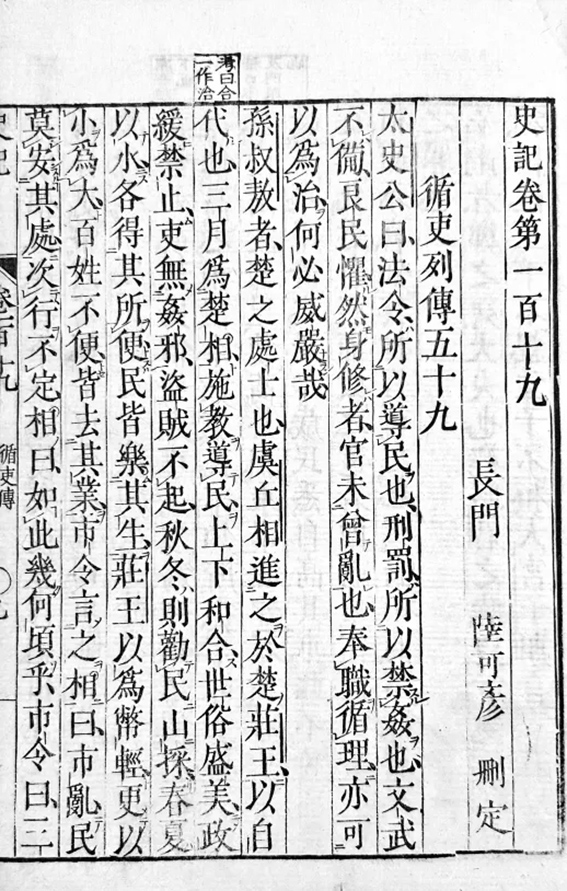 曰合
一作洽
史記卷第一百十九
長門 陸可彥 刪定
循吏列傳五十九
太史公曰法令所以導民也刑罰所以禁姦也文武
不備良民懼然身修者官未曾亂也奉職循理亦可
以爲治何必威嚴哉
孫叔敖者楚之處士也虞丘相進之於楚莊王以自
代也三月爲楚相施教導民上下和合世俗盛美政
緩禁止吏無姦邪盜賊不起秋冬則勸民山採春夏
以水各得其所便民皆樂其生莊王以爲幣輕更以
小爲大百姓不便皆去其業市令言之相曰市亂民
莫安其處次行不定相曰如此幾何頃乎市令曰三
循吏傳